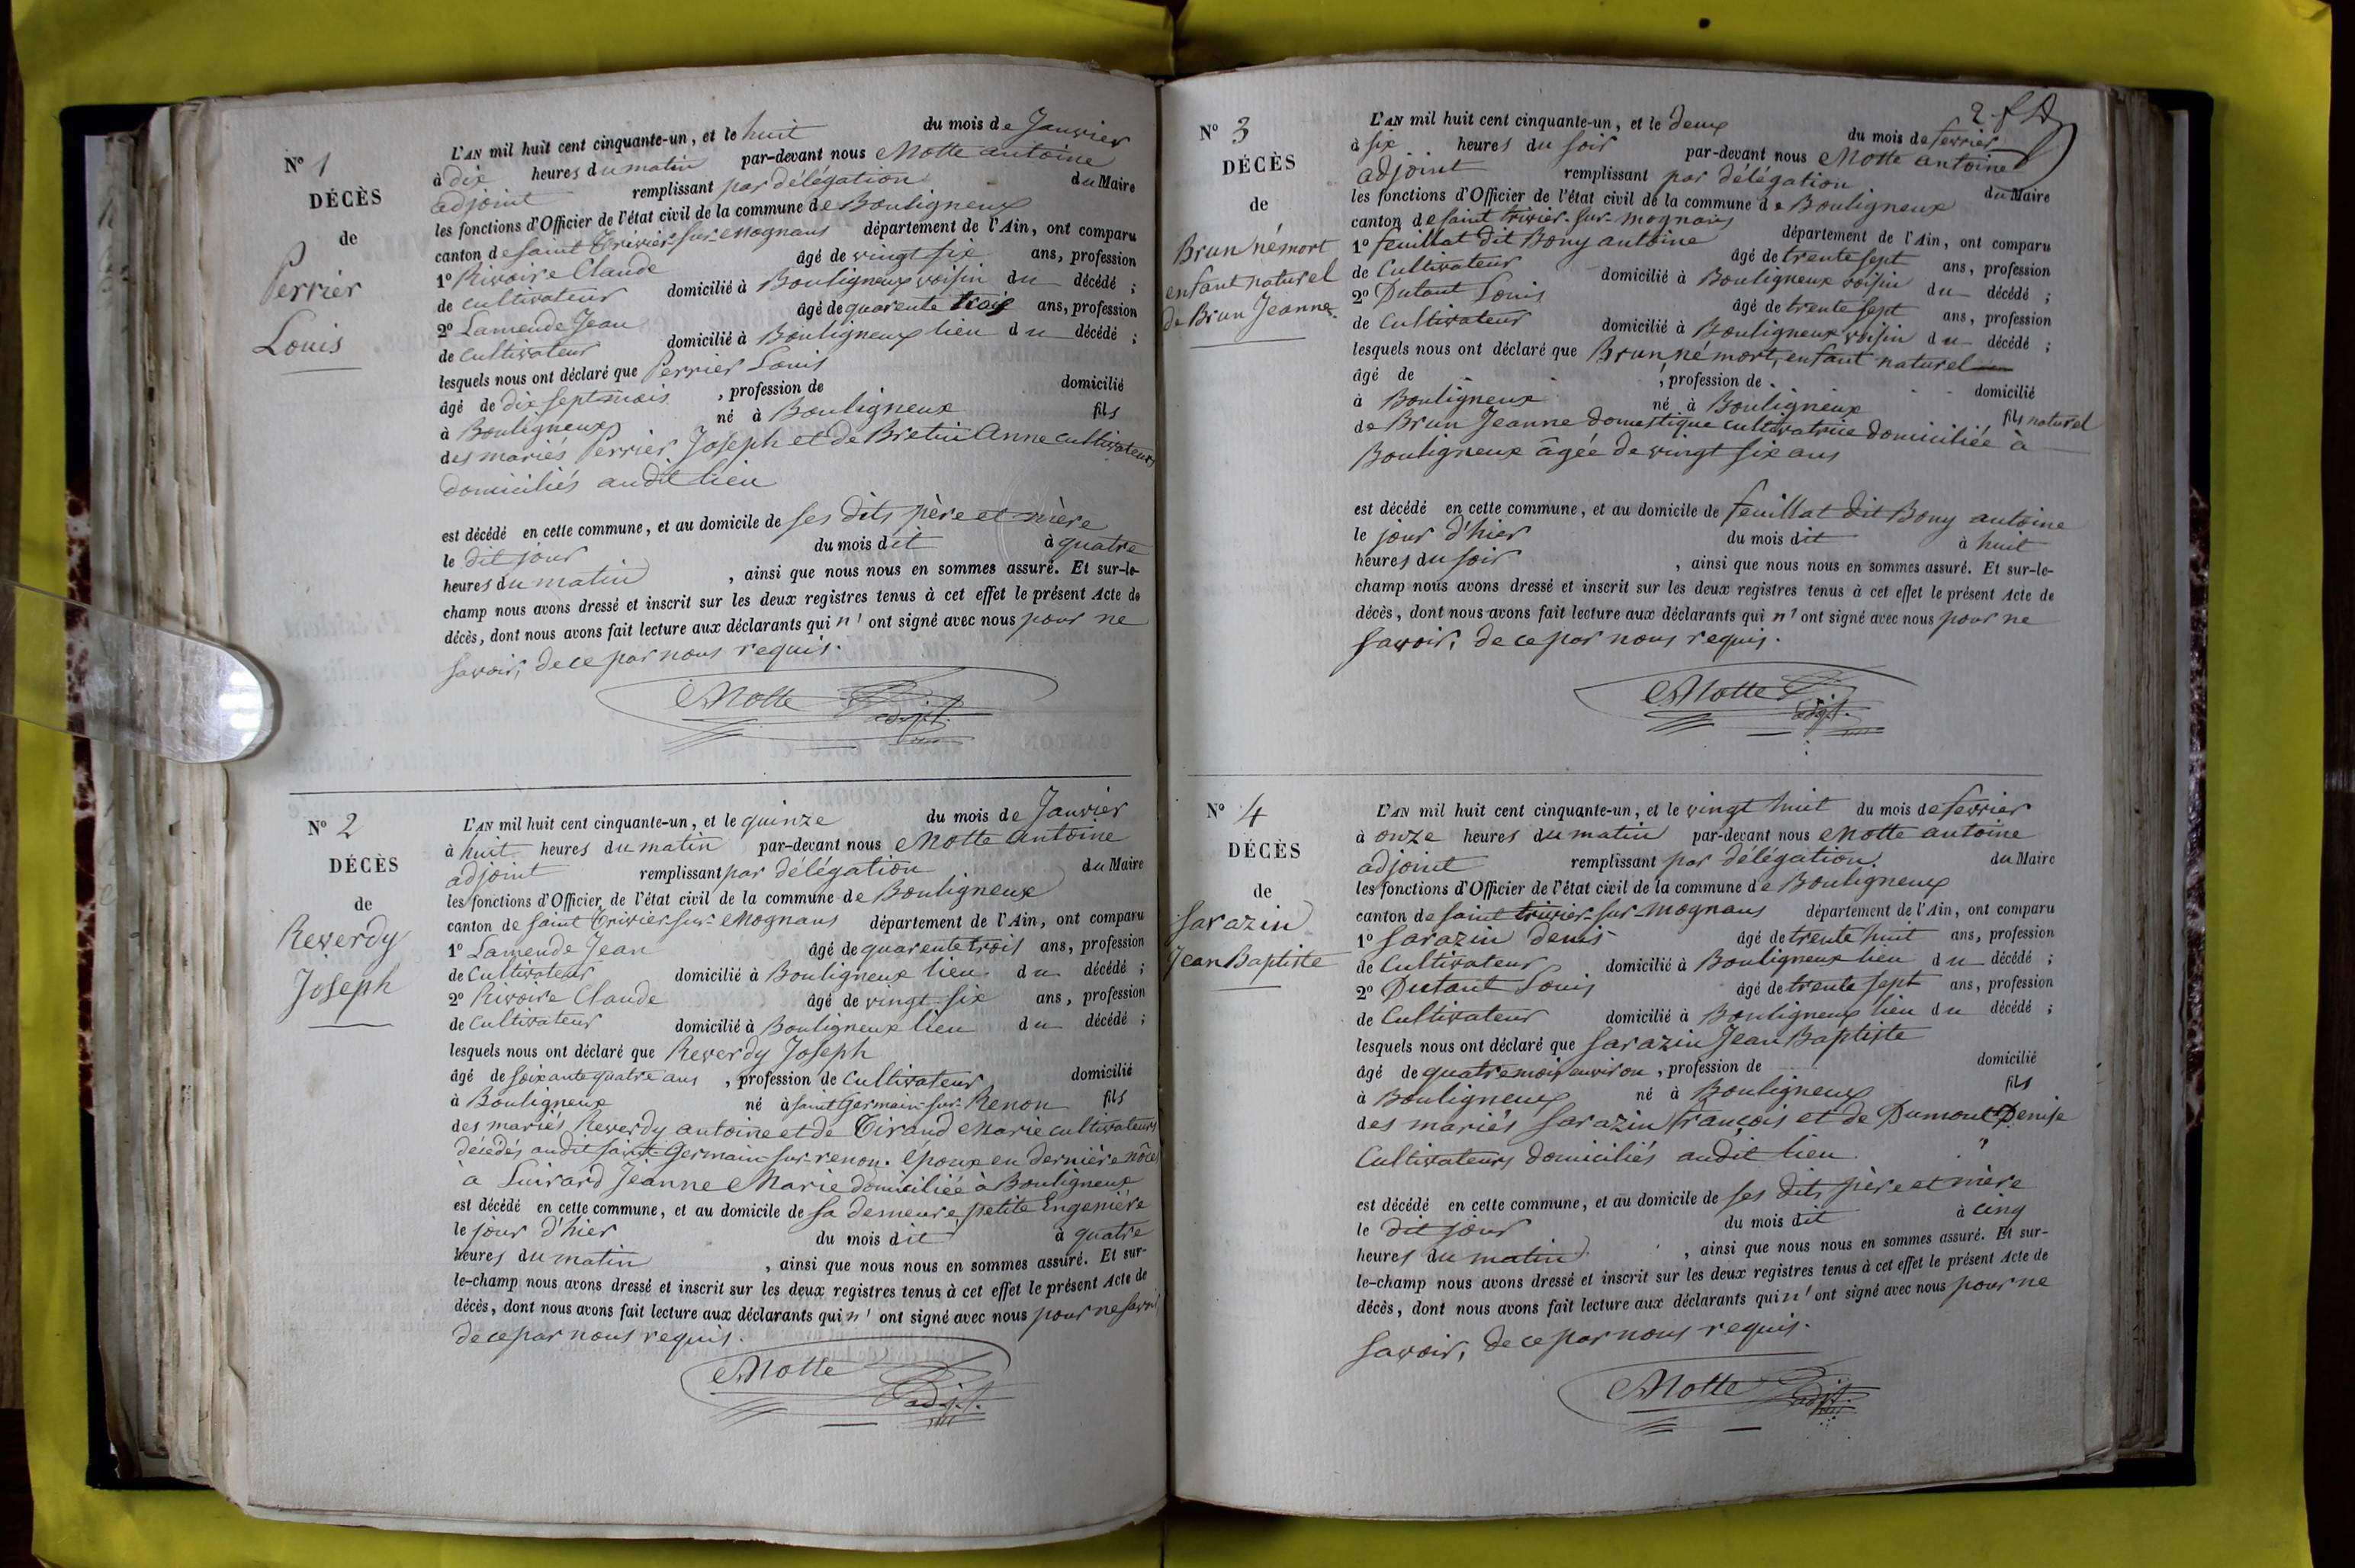 N° 1
DÉCÈS
de
Perrier
Louis
L'AN mil huit cent cinquante-un, et le huit du mois de Janvier
à dix heures du matin par-devant nous Motte antoine
adjoint remplissant par délégation du Maire
les fonctions d'Officier de l'état civil de la commune de Bouligneux
canton de saint Trivier-sur-Mognans département de l'Ain, ont comparu
1° Rivoire Claude âgé de vingt six ans, profession
de cultivateur domicilié à Bouligneux voisin du décédé ;
2° Lamende Jean âgé de quarente trois ans, profession
de cultivateur domicilié à Bouligneux lieu du décédé ;
lesquels nous ont déclaré que Perrier Louis
âgé de dix sept mois , profession de domicilié
à Bouligneux né à Bouligneux fils
des mariés Perrier Joseph et de Bretin Anne cultivateurs
domiciliés audit lieu
est décédé en cette commune, et au domicile de ses dits père et mère
le dit jour du mois dit à quatre
heures du matin , ainsi que nous nous en sommes assuré. Et sur-le-
champ nous avons dressé et inscrit sur les deux registres tenus à cet effet le présent Acte de
décès, dont nous avons fait lecture aux déclarants qui n' ont signé avec nous pour ne
savoir, de ce par nous requis.
Motte adjt.
N° 2
DÉCÈS
de
Reverdy
Joseph
L'AN mil huit cent cinquante-un, et le quinze du mois de Janvier
à huit heures du matin par-devant nous Motte antoine
adjoint remplissant par délégation du Maire
les fonctions d'Officier de l'état civil de la commune de Bouligneux
canton de saint Trivier-sur-Mognans département de l'Ain, ont comparu
1° Lamende Jean âgé de quarente trois ans, profession
de Cultivateur domicilié à Bouligneux lieu du décédé ;
2° Rivoire Claude âgé de vingt-six ans, profession
de Cultivateur domicilié à Bouligneux lieu du décédé ;
lesquels nous ont déclaré que Reverdy Joseph
âgé de soixante quatre ans , profession de Cultivateur domicilié
à Bouligneux né à saint Germain-sur-Renon fils
des mariés Reverdy antoine et de Tirand Marie cultivateurs
décédés audit saint-Germain-sur-renon. époux en dernière nôce
à Guirard Jeanne Marie domiciliée à Bouligneux
est décédé en cette commune, et au domicile de sa demeure petite Engenière
le jour d'hier du mois dit à quatre
heures du matin , ainsi que nous nous en sommes assuré. Et sur-
le-champ nous avons dressé et inscrit sur les deux registres tenus à cet effet le présent Acte de
décès, dont nous avons fait lecture aux déclarants qui n' ont signé avec nous pour ne savoir
de ce par nous requis.
Motte adjt.
2
N° 3
DÉCÈS
de
Brun né mort
enfant naturel
de Brun Jeanne
L'AN mil huit cent cinquante-un, et le deux du mois de fevrier
à six heures du soir par-devant nous Motte antoine
adjoint remplissant par délégation du Maire
les fonctions d'Officier de l'état civil de la commune de Bouligneux
canton de saint trivier-sur-mognans département de l'Ain, ont comparu
1° feuillat dit Bony antoine âgé de trente sept ans, profession
de Cultivateur domicilié à Bouligneux voisin du décédé ;
2° Dutant Louis âgé de trente sept ans, profession
de Cultivateur domicilié à Bouligneux voisin du décédé ;
lesquels nous ont déclaré que Brun né mort, enfant naturel
âgé de , profession de domicilié
à Bouligneux né à Bouligneux fils naturel
de Brun Jeanne domestique cultivatrice domiciliée à
Bouligneux âgée de vingt six ans
est décédé en cette commune, et au domicile de feuillat dit Bony antoine
le jour d'hier du mois dit à huit
heures du soir , ainsi que nous nous en sommes assuré. Et sur-le-
champ nous avons dressé et inscrit sur les deux registres tenus à cet effet le présent Acte de
décès, dont nous avons fait lecture aux déclarants qui n' ont signé avec nous pour ne
savoir, de ce par nous requis.
Motte adjt.
N° 4
DÉCÈS
de
Sarazin
Jean Baptiste
L'AN mil huit cent cinquante-un, et le vingt huit du mois de fevrier
à onze heures du matin par-devant nous Motte antoine
adjoint remplissant par délégation. du Maire
les fonctions d'Officier de l'état civil de la commune de Bouligneux
canton de saint trivier-sur-mognans département de l'Ain, ont comparu
1° Sarazin denis âgé de trente huit ans, profession
de Cultivateur domicilié à Bouligneux lieu du décédé ;
2° Dutant Louis âgé de trente sept ans, profession
de Cultivateur domicilié à Bouligneux lieu du décédé ;
lesquels nous ont déclaré que Sarazin Jean Baptiste
âgé de quatre mois environ , profession de domicilié
à Bouligneux né à Bouligneux fils
des mariés Sarazin françois et de Dumont Denise
Cultivateurs domiciliés audit lieu.
est décédé en cette commune, et au domicile de ses dits père et mère
le dit jour du mois dit à cinq
heures du matin , ainsi que nous nous en sommes assuré. Et sur-
le-champ nous avons dressé et inscrit sur les deux registres tenus à cet effet le présent Acte de
décès, dont nous avons fait lecture aux déclarants qui n' ont signé avec nous pour ne
savoir, de ce par nous requis.
Motte adjt.